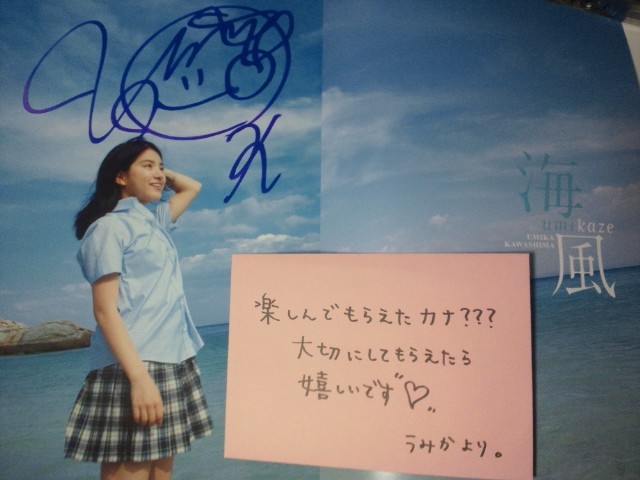 海
umikaze
UMIKA
KAWASHIMA
風
楽しんでもらえたカナ???
大切にしてもらえたら
嬉しいです"♡"
うみかより。